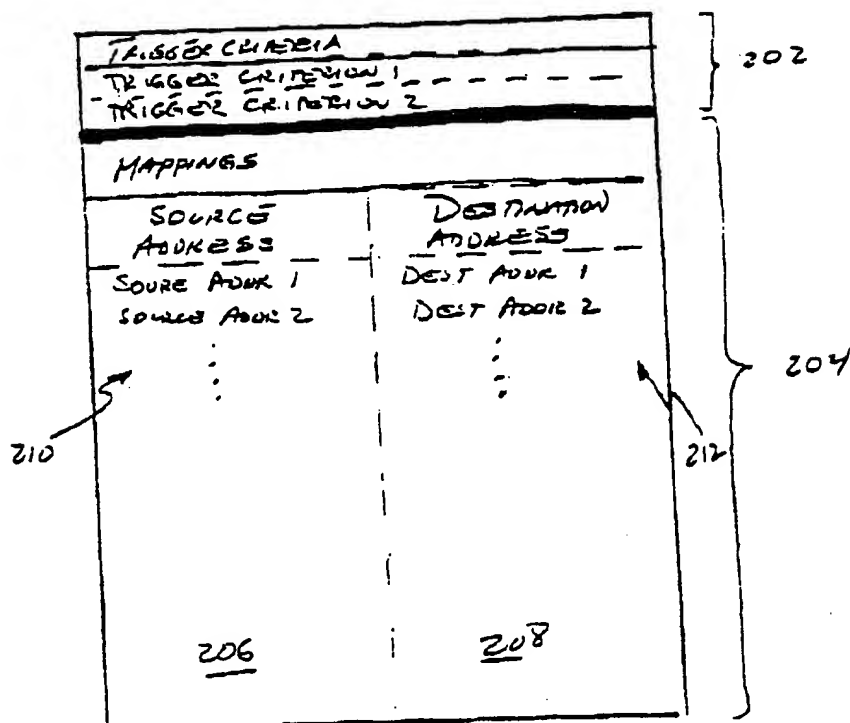 TRIGGER CRITERIA
TRIGGER CRITERION 1
TRIGGER CRITERION 2
202
MAPPINGS
SOURCE ADDRESS
DESTINATION ADDRESS
SOURE ADDR 1
DEST ADDR 1
SOURCE ADDR 2
DEST ADDR 2
204
210
212
206
208